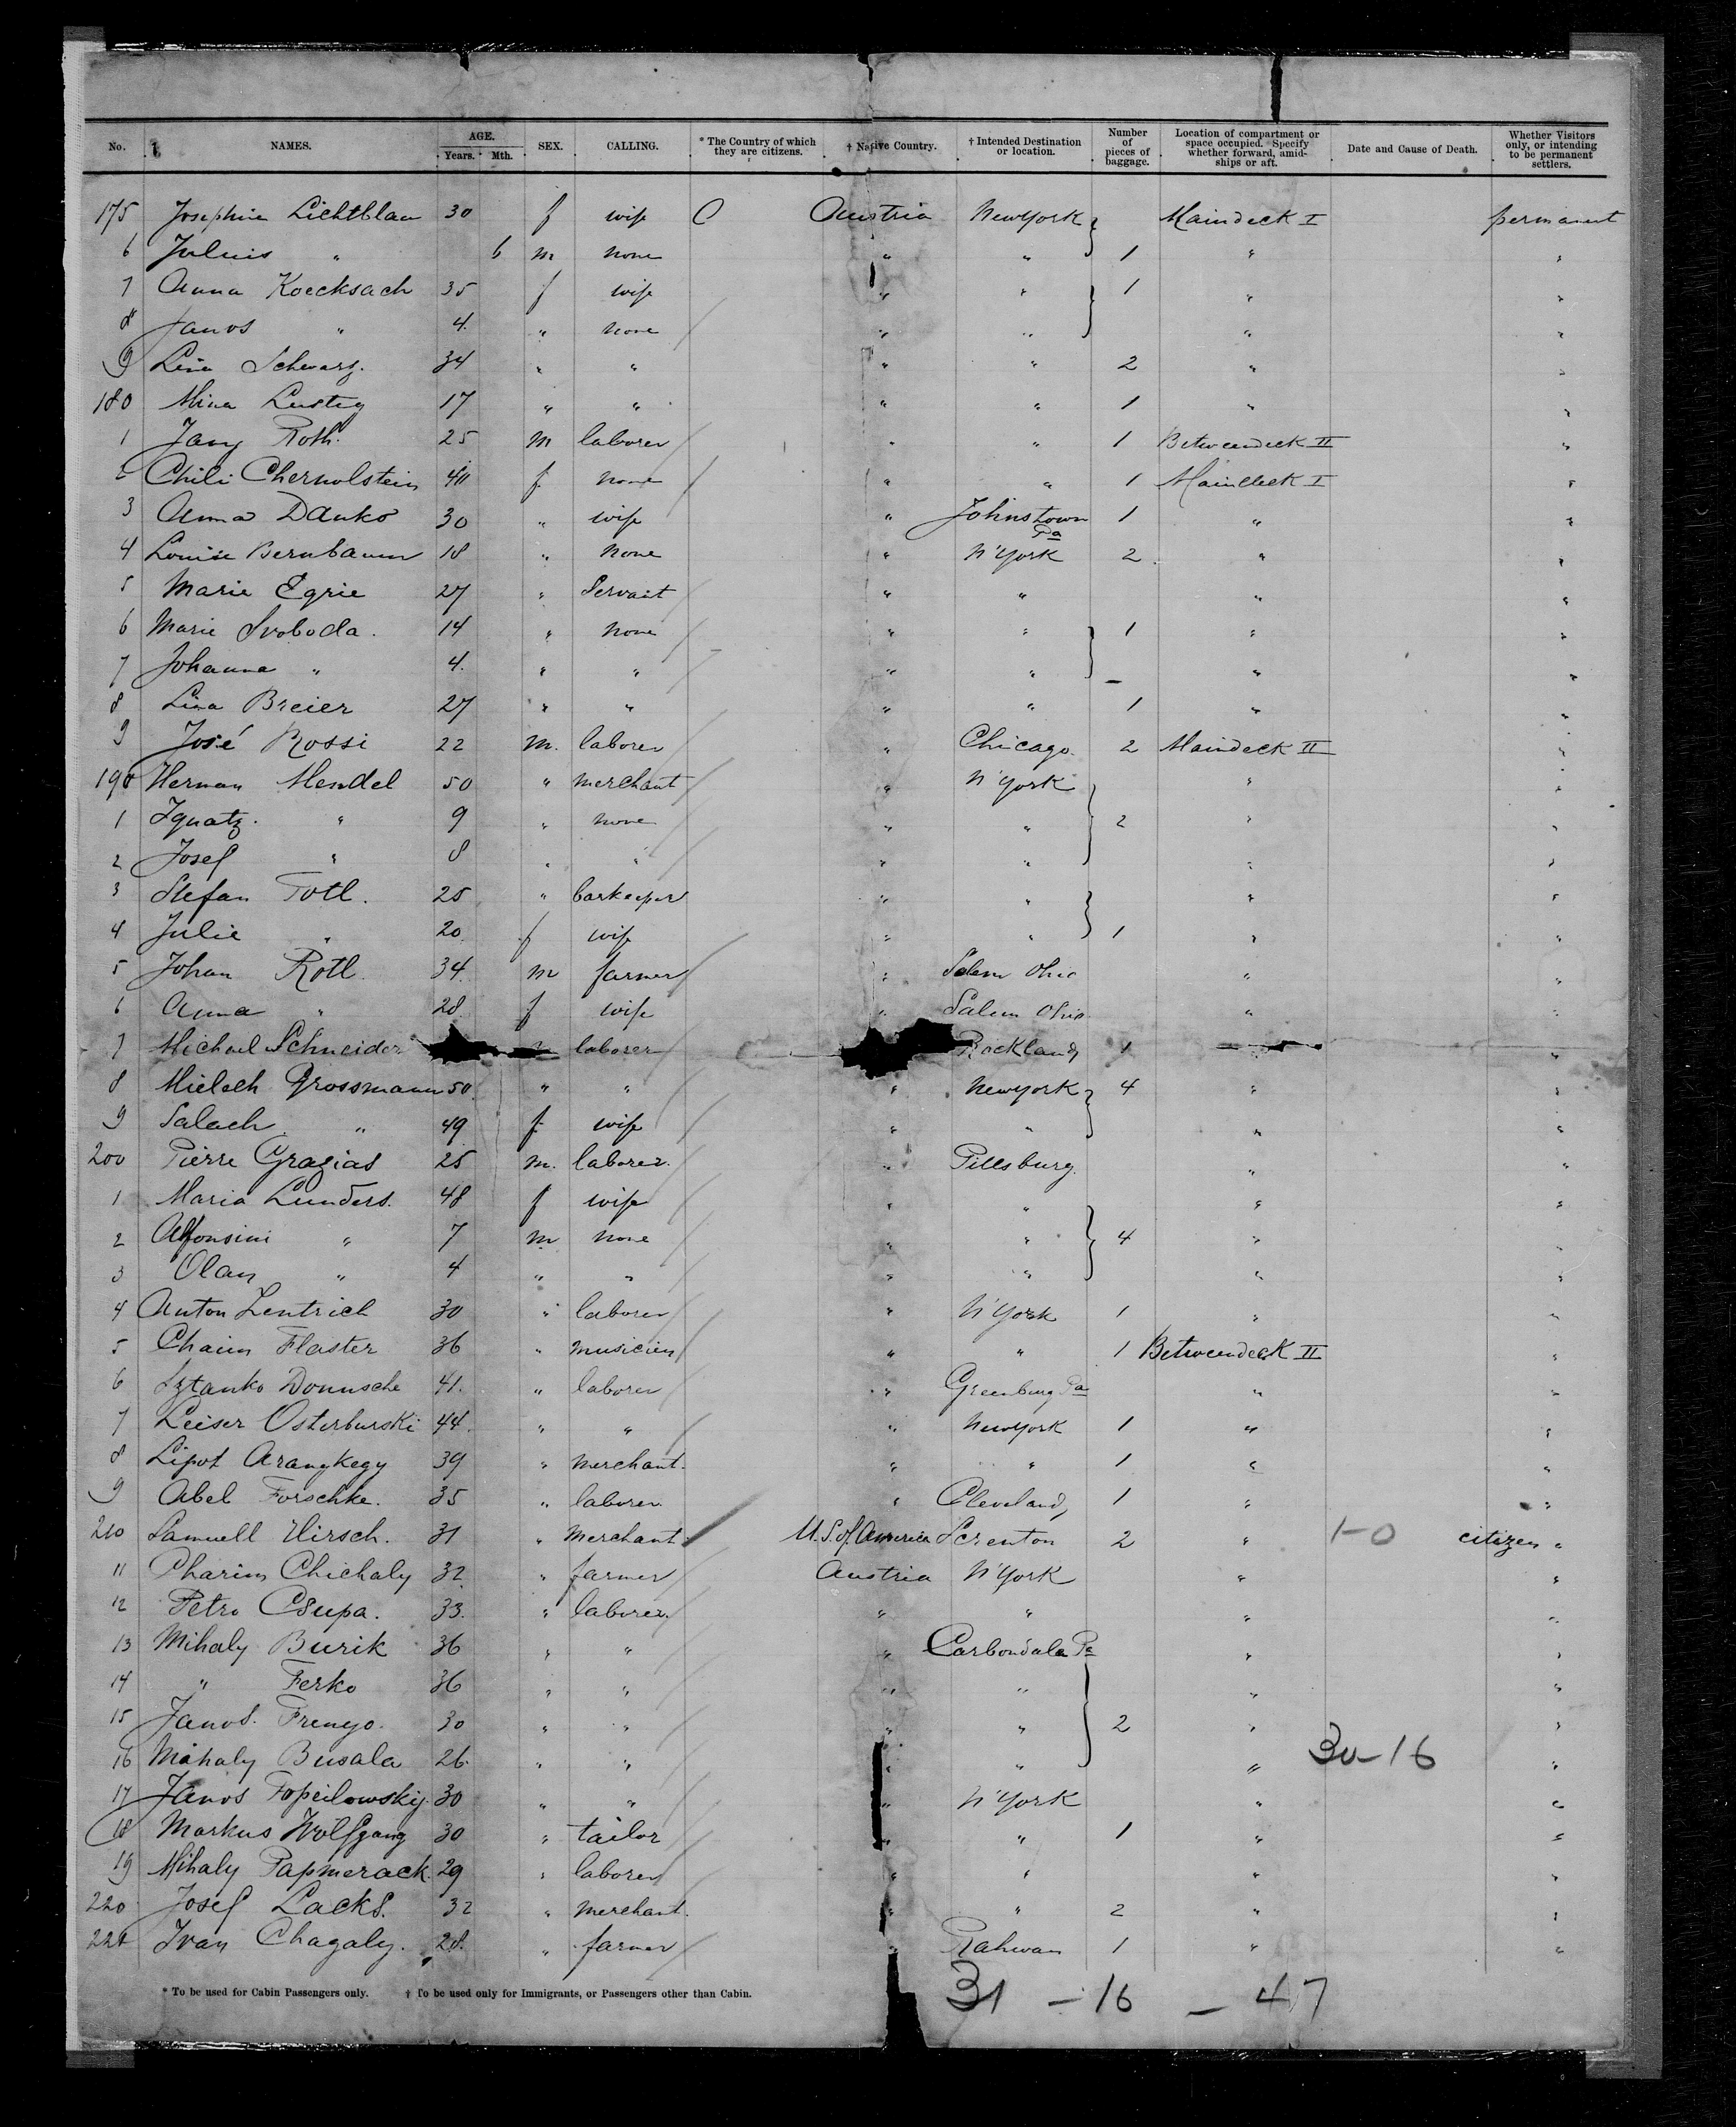 No. NAMES. AGE. Years. Mth. SEX. CALLING. * The Country of which they are citizens. † Native Country. † Intended Destination or location. Number of pieces of baggage. Location of compartment or space occupied. Specify whether forward, amidships or aft. Date and Cause of Death. Whether Visitors only, or intending to be permanent settlers.
175 Josephine Lichtblau 30 f wife C Austria Newyork Maindeck I permanent
6 Julius " 6 m none " " 1 " "
7 Anna Koecksach 35 f wife " " 1 " "
8 Janos " 4 " none " " " "
9 Lina Schwarz. 34 " " " " 2 " "
180 Mina Lustig 17 " " " " 1 " "
1 Jany Roth. 25 m laborer " " 1 Betweendeck II "
2 Chili Chernolstein 40 f none " " 1 Maindeck I "
3 Anna Danko 30 " wife " Johnstown Pa 1 " "
4 Louise Bernbaum 18 " none " N'York 2 " "
5 Marie Egrie 27 " Servant " " " "
6 Marie Svoboda. 14 " none " " 1 " "
7 Johanna " 4. " " " " – " "
8 Lina Breier 27 " " " " 1 " "
9 José Rossi 22 m. laborer " Chicago. 2 Maindeck II "
190 Herman Mendel 50 " merchant " N'York " "
1 Ignatz. " 9 " none " " 2 " "
2 Josef " 8 " " " " " "
3 Stefan Totl. 25 " barkeeper " " " "
4 Julie " 20 f wife " " 1 " "
5 Johan Rotl. 34. m farmer " Salem Ohio " "
6 Anna " 28 f wife " Salem Ohio. " "
7 Michael Schneider laborer Rockland, 1 "
8 Mielech Grossmann 50. " " " Newyork 4 " "
9 Salach " 49 f wife " " " "
200 Pierre Grazias 25 m. laborer. " Pillsburg. " "
1 Maria Lunders. 48 f wife " " " "
2 Alfonsini " 7 m none " " 4 " "
3 Olan " 4 " " " " " "
4 Anton Zentrich 30 " laborer " N'York 1 " "
5 Chaim Flaster 36 " musicien " " 1 Betweendeck II "
6 Sztanko Donnsche 41. " laborer " Greenburg Pa " "
7 Leiser Osterburski 44. " " " Newyork 1 " "
8 Lipot Arangkegy 39 " merchant. " " 1 " "
9 Abel Forschke. 35 " laborer " Cleveland, 1 " "
210 Samuell Hirsch. 31 " merchant. U.S. of America Screnton 2 " 1-0 citizen "
11 Pharim Chichaly 32. " farmer Austria N'York " "
12 Petro Csupa. 33. " laborer. " " " "
13 Mihaly Burik 36 " " " Carbondale Pa " "
14 " Ferko 36 " " " " " "
15 Janos. Frenyo. 30 " " " " 2 " "
16 Mihaly Busala 26. " " " " " 30-16 "
17 Janos Topeilowskij. 30 " " " N'York " "
18 Markus Wolfgang 30 " tailor " " 1 " "
19 Mihaly Papmerack. 29 " laborer " " " "
220 Josef Lacks. 32 " merchant. " " 2 " "
221 Ivan Chagaly. 28. " farmer " Rahwan 1 " "
* To be used for Cabin Passengers only. † To be used only for Immigrants, or Passengers other than Cabin.
31 – 16 – 47